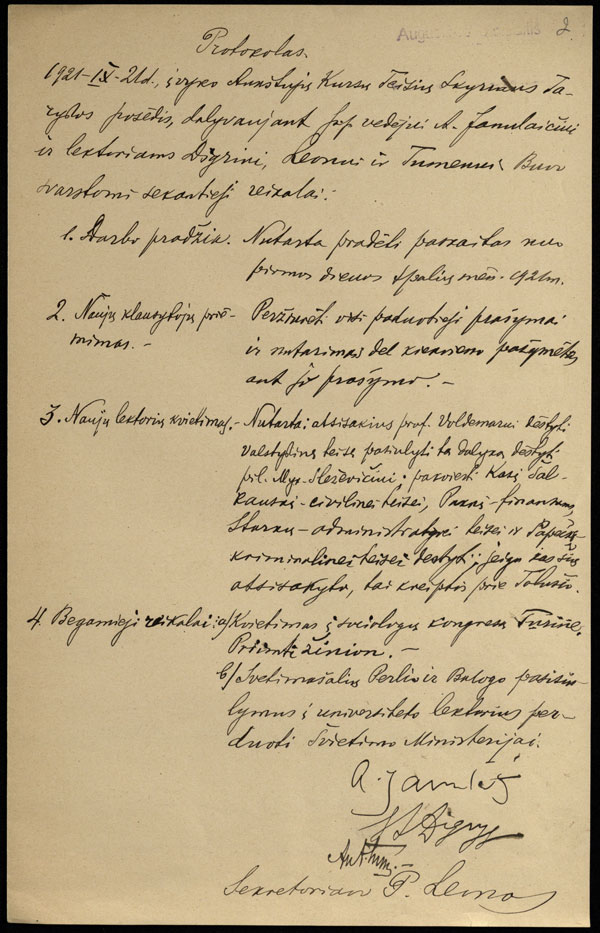 2.
Protokolas.
1921-IX-21 d. įvyko Aukštųjų Kursų Teisių Skyriaus Ta-
rybos posėdis, dalyvaujant vedėjui A. Janulaičiui
ir lektoriams Digriui, Leonui ir Tumėnui. Buvo
svarstomi sekantieji reikalai:
1. Darbo pradžia. Nutarta pradėti paskaitas nuo
pirmos dienos spalių mėn. 1921 m.
2. Naujų klausytojų priė- Peržiūrėti visi paduotieji prašymai
mimas. - ir nutarimai dėl kiekvieno pažymėtas
ant jo prašymo. -
3. Naujų lektorių kvietimas. - Nutarta: atsisakius prof. Voldemarui dėstyti
valstybinę teisę pasiulyti tą dalyką dėstyti
pil. Myk. Sleževičiui; pakviesti Kazį Šal-
kauskį - civilinei teisei, - finansams,
Starkų - administratyvei teisei ir Papečkį
kriminalinei teisei dėstyti; jeigu kas šių
atsisakytų, tai kreiptis prie Toliušio.
4. Begamieji reikalai: a) Kvietimas į sociologų kongresą Turine.
Priimti žinion. -
b) Svetimšalių Perlio ir Balogo pasisiu-
lymus į universiteto lektorius per-
duoti Švietimo Ministerijai.
A. Janulaitis
Digrys
Ant. Tum. -
Sekretorius P. Leonas